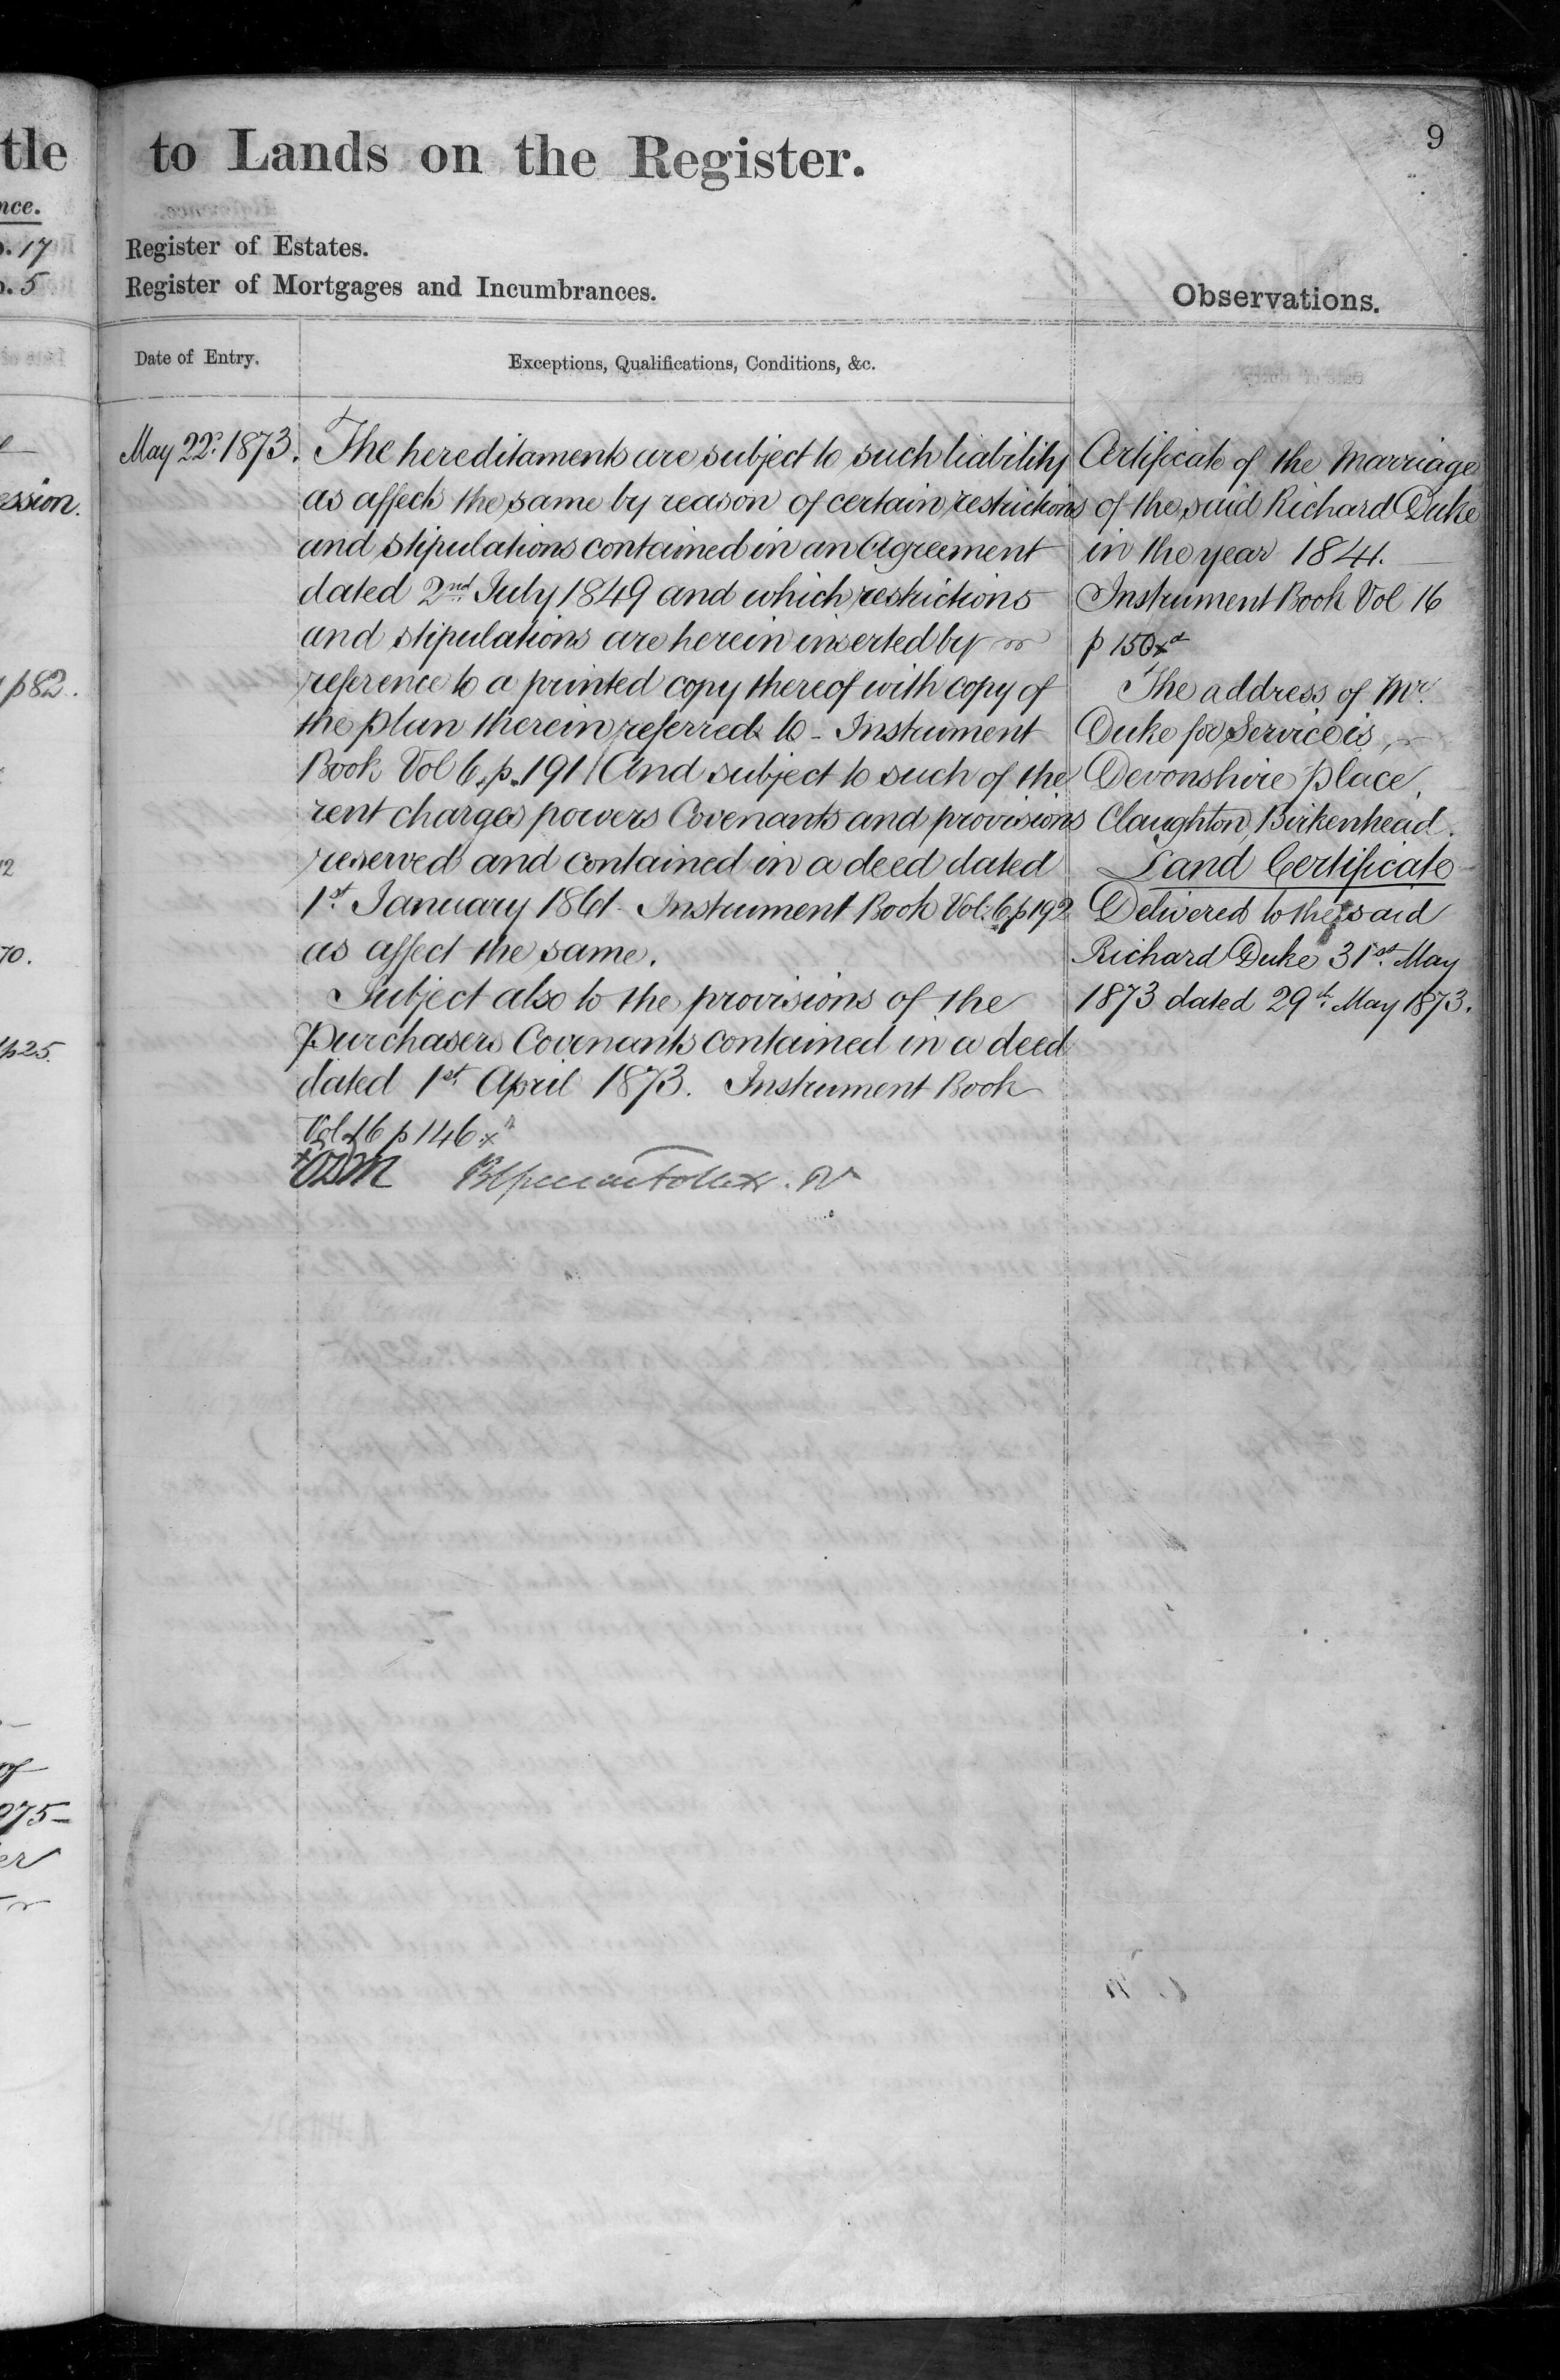 tle
nce.
. 17
. 5
ession.
p82.
12
70.
p25.
of
975-
er
9
to Lands on the Register.
Register of Estates.
Register of Mortgages and Incumbrances.
Observations.
Date of Entry.
Exceptions, Qualifications, Conditions, &c.
May 22. 1873.
The hereditaments are subject to such liability
as affects the same by reason of certain restrictions
and stipulations contained in an Agreement
dated 2nd. July 1849 and which restrictions
and stipulations are herein inserted by
reference to a printed copy thereof with copy of
the plan therein referred to - Instrument
Book Vol 6. p. 191 / And subject to such of the
rent charges powers Covenants and provisions
reserved and contained in a deed dated
1st. January 1861 - Instrument Book Vol. 6 p 192
as affect the same.
Subject also to the provisions of the
Purchasers Covenants contained in a deed
dated 1st. April 1873. Instrument Book
Vol 16 p 146
Certificate of the Marriage
of the said Richard Duke
in the year 1841.
Instrument Book Vol 16
p 150
The address of Mr.
Duke for Service is
Devonshire Place,
Claughton, Birkenhead.
Land Certificate
Delivered to the said
Richard Duke 31st. May
1873 dated 29th. May 1873.